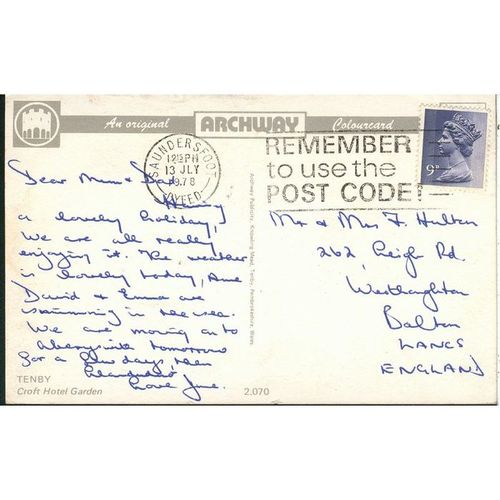 An original ARCHWAY Colourcard
SAUNDERSFOOT
12 30 PM
13 JLY
1978
DYFED
REMEMBER
to use the
POST CODE!
9P
Dear Mum & Dad,
Having
a lovely holiday,
We are all really
enjoying it. The weather
is lovely today, and
David & Emma are
swimming in the sea.
We are moving on to
Aberystwith tomorrow
for a few days then
Llandudno
Love June.
Mr & Mrs F. Hulton
262, Leigh Rd.
Westhoughton
Bolton
LANCS
ENGLAND
TENBY
Croft Hotel Garden
2.070